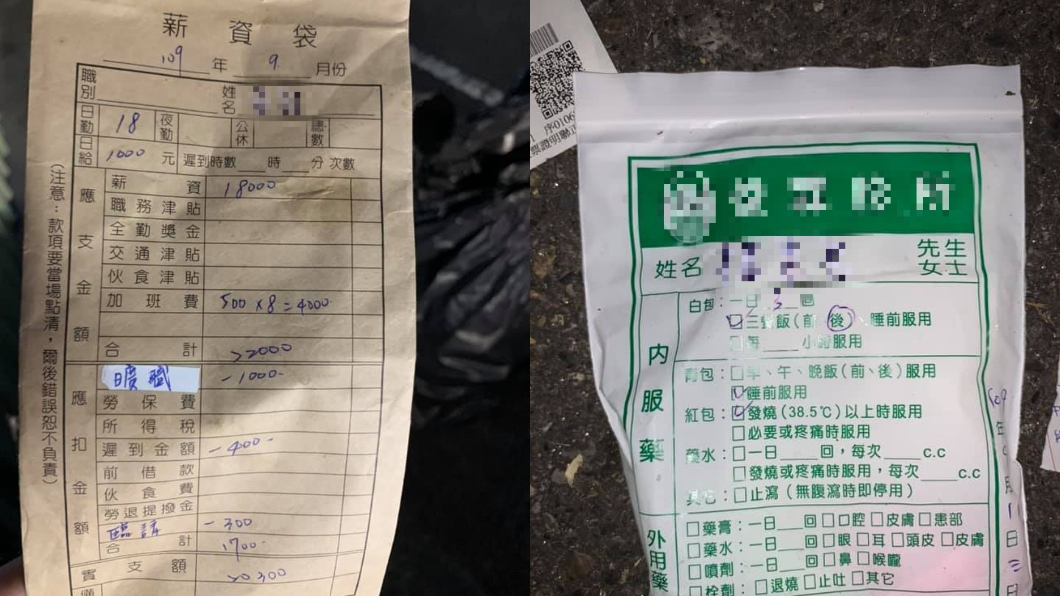 薪資袋
109年 9 月份
職別 姓名
日勤 18 夜勤 公休 總數
日給 1000 元 遲到時數 時 分 次數
應支金額
薪資 18000
職務津貼
全勤獎金
交通津貼
伙食津貼
加班費 500×8=4000-
合計 22000
應扣金額
曠職 -1000-
勞保費
所得稅
遲到金額 -400-
前借款
伙食費
勞退提撥金
臨請 -300
合計 1700-
實支額 20300
(注意：款項要當場點清，爾後錯誤恕不負責)
序0106
姓名 先生女士
內服藥
白包：一日 3 回
☑三餐飯(前、後)、睡前服用
□每____小時服用
青包：□早、午、晚飯(前、後)服用
☑睡前服用
紅包：☑發燒(38.5℃)以上時服用
□必要或疼痛時服用
藥水：□一日____回，每次____c.c
□發燒或疼痛時服用，每次____c.c
其它：□止瀉(無腹瀉時即停用)
外用藥
□藥膏：一日____回□口腔□皮膚□患部
□藥水：一日____回□眼□耳□頭皮□皮膚
□噴劑：一日____回□鼻□喉嚨
□栓劑：□退燒□止吐□其它
年
月
日